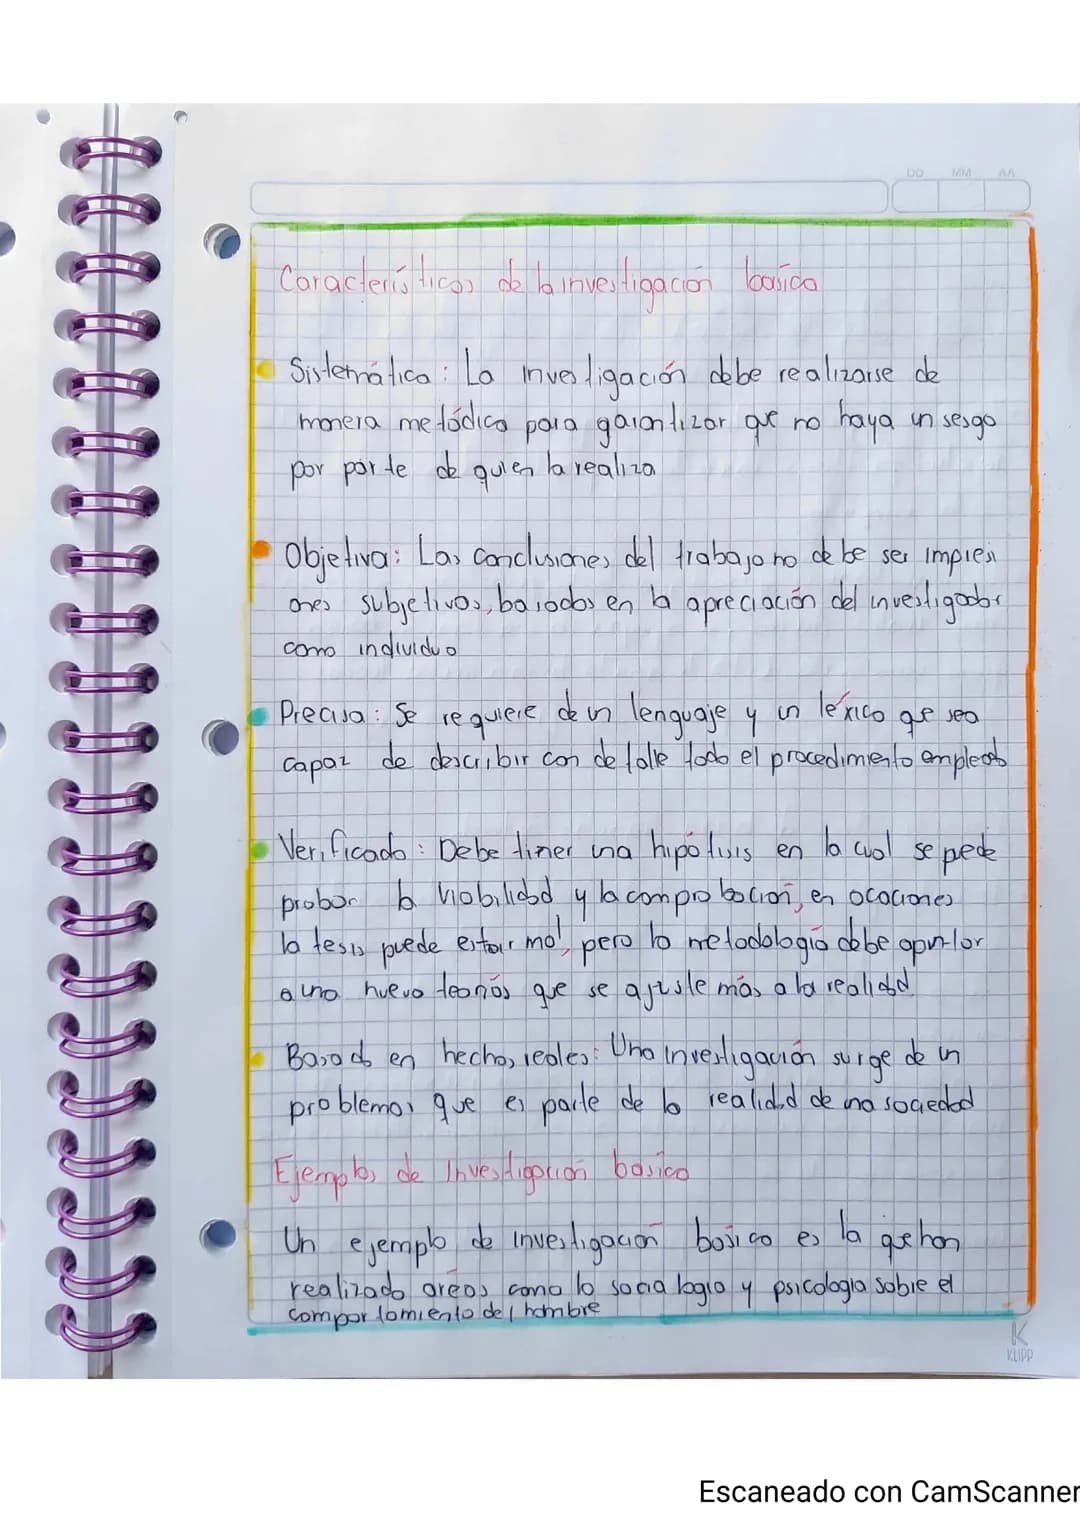 DD MM AA
Características de la investigación basica
Sistemática: La investigación debe realizarse de
manera metódica para garantizar que no haya un sesgo
por parte de quien la realiza
Objetiva: Las conclusiones del trabajo no debe ser impresi
ones subjetivos, basados en la apreciación del investigador
como individuo
Precisa: Se requiere de un lenguaje y un léxico que sea
capaz de describir con detalle todo el procedimiento empleado
Verificado: Debe tiner una hipótisis en la cual se pede
probar la viabilidad y la comprobación, en ocaciones
la tesis puede estar mal, pero la metodología debe apuntar
a una nueva teorías que se ajuste más a la realidad
Basado en hechos reales: Una investigación surge de un
problemas que es parte de la realidad de una sociedad
Ejemplos de Investigación basica
Un ejemplo de investigación basica es la que han
realizado areas como la sociología y psicologia sobre el
comportamiento del hombre
K
KLIPP
Escaneado con CamScanner